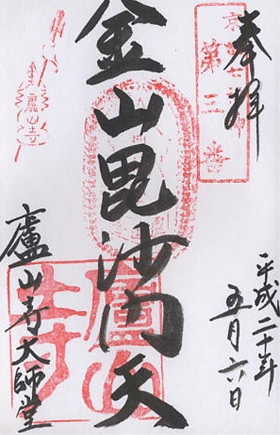 奉拝
第三番
平成二十年
五月六日
金山毘沙門天
廬山寺大師堂
廬山寺